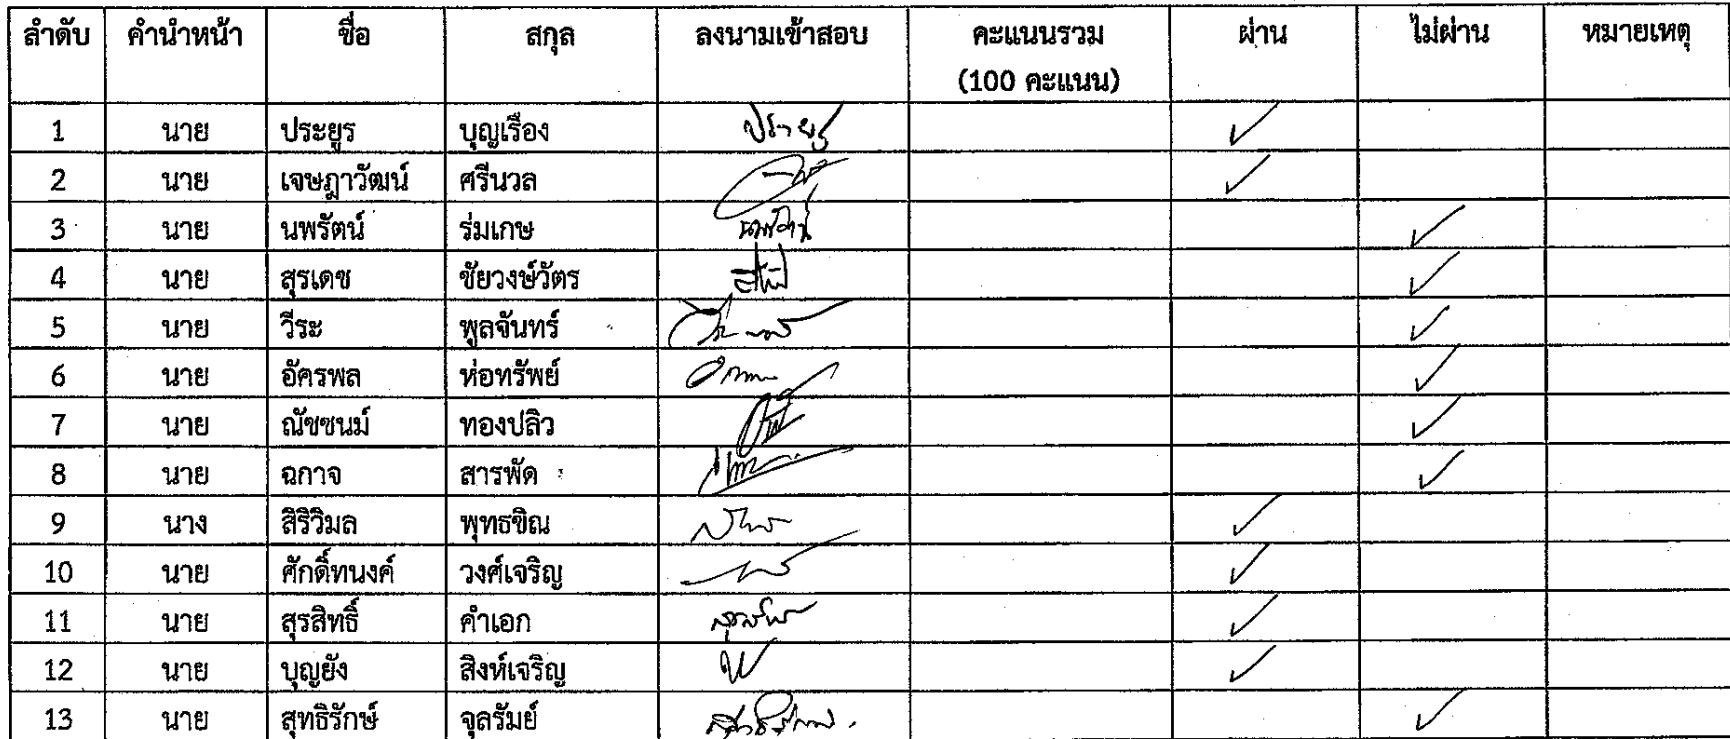 ลำดับ คำนำหน้า ชื่อ สกุล ลงนามเข้าสอบ คะแนนรวม ผ่าน ไม่ผ่าน หมายเหตุ
(100 คะแนน)
1 นาย ประยูร บุญเรือง ประยูร ✓
2 นาย เจษฎาวัฒน์ ศรีนวล ✓
3 นาย นพรัตน์ ร่มเกษ นพรัตน์ ✓
4 นาย สุรเดช ชัยวงษ์วัตร ✓
5 นาย วีระ พูลจันทร์ ✓
6 นาย อัครพล ห่อทรัพย์ ✓
7 นาย ณัชชนม์ ทองปลิว ✓
8 นาย ฉกาจ สารพัด ✓
9 นาง สิริวิมล พุทธขิณ ✓
10 นาย ศักดิ์ทนงค์ วงศ์เจริญ ✓
11 นาย สุรสิทธิ์ คำเอก ✓
12 นาย บุญยัง สิงห์เจริญ ✓
13 นาย สุทธิรักษ์ จุลรัมย์ ✓